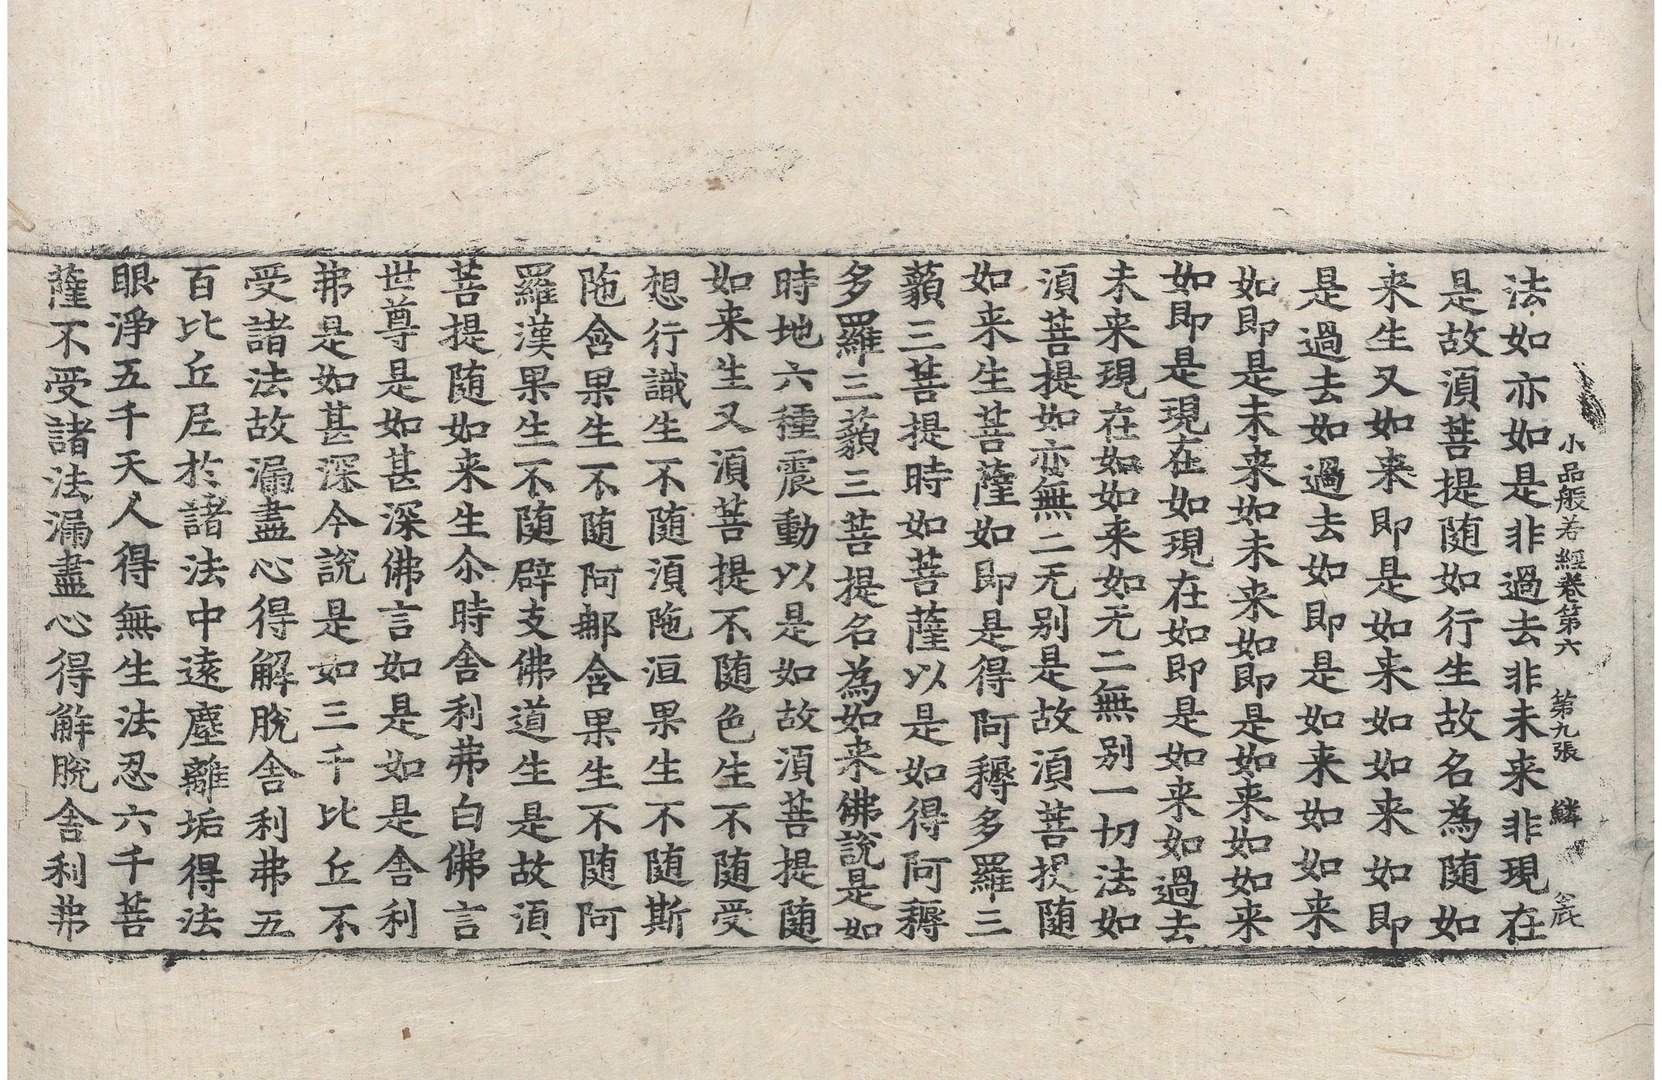 小品般若經卷第六 第九張 鱗
法如亦如是非過去非未来非現在
是故湏菩提随如行生故名為随如
来生又如来即是如来如如来如即
是過去如過去如即是如来如如来
如即是未来如未来如即是如来如如来
如即是現在如現在如即是如来如過去
未来現在如如来如无二無别一切法如
湏菩提如亦無二无别是故湏菩提随
如来生菩薩如即是得阿耨多羅三
藐三菩提時如菩薩以是如得阿耨
多羅三藐三菩提名為如来佛說是如
時地六種震動以是如故湏菩提随
如来生又湏菩提不随色生不随受
想行識生不随湏陁洹果生不随斯
陁含果生不随阿那含果生不随阿
羅漢果生不随辟支佛道生是故湏
菩提随如来生尒時舍利弗白佛言
世尊是如甚深佛言如是如是舍利
弗是如甚深今說是如三千比丘不
受諸法故漏盡心得解脫舍利弗五
百比丘尼於諸法中遠塵離垢得法
眼淨五千天人得無生法忍六千菩
薩不受諸法漏盡心得解脫舍利弗